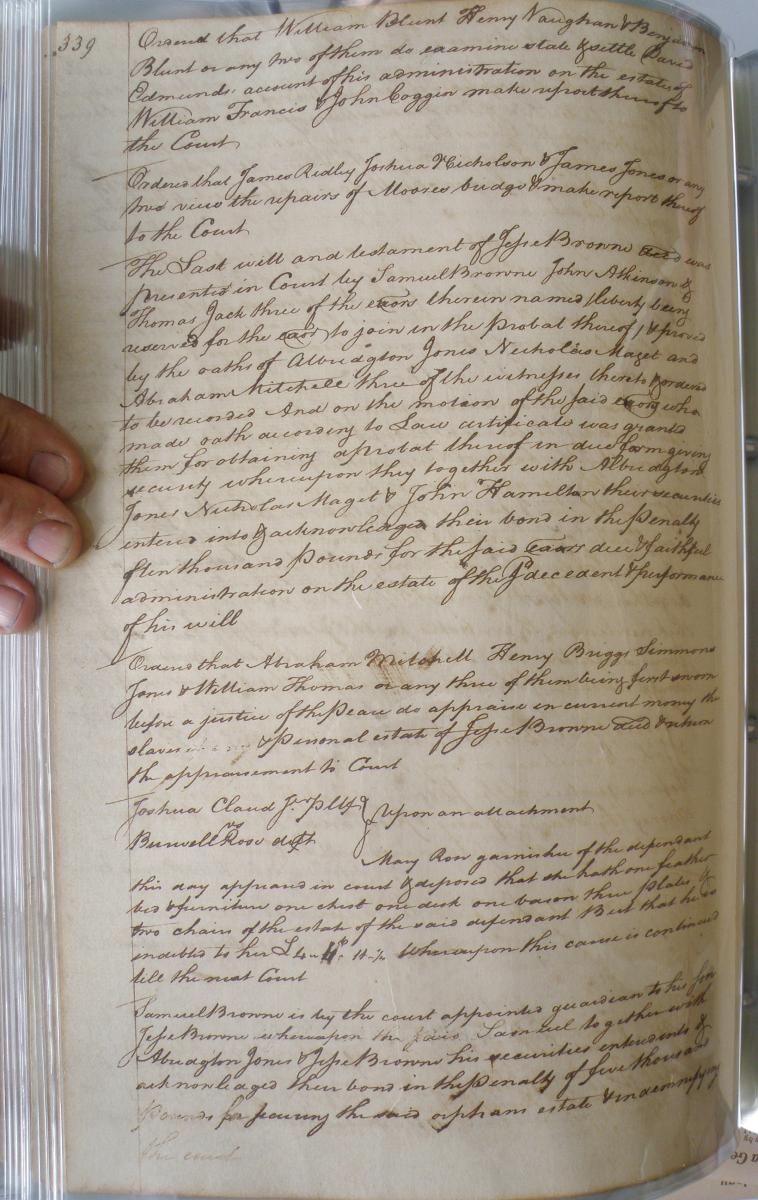 339
Ordered that William Blunt Henry Vaughan & Benjamin
Blunt or any two of them do examine state & settle David
Edmunds account of his administration on the estates of
William Francis & John Coggin make report thereof to
the Court
Ordered that James Ridley Joshua Nicholson & James Jones or any
two view the repairs of Moores bridge & make report thereof
to the Court
The Last will and testament of Jesse Browne decd was
presented in Court by Samuel Browne John Atkinson &
Thomas Jack three of the exors therein named / liberty being
reserved for the exor to join in the probat thereof / & proved
by the oaths of Albridgton Jones Nicholas Maget and
Abraham Mitchell three of the witnesses thereto & ordered
to be recorded And on the motion of the said exors who
made oath according to Law certificate was granted
them for obtaining a probat thereof in due form giving
security whereupon they together with Albridgton
Jones Nicholas Maget & John Hamelton their securities
entered into & acknowledged their bond in the Penalty
of ten thousand Pounds for the said exors due & faithful
administration on the estate of the sd decedent & performance
of his will
Ordered that Abraham Mitchell Henry Briggs Simmons
Jones & William Thomas or any three of them being first sworn
before a justice of the Peace do appraise in current money the
slaves & Personal estate of Jesse Browne decd & return
the appraisement to Court
Joshua Claud Jr Pltf
vs
Upon an attachment
Burwell Rose deft
Mary Rose garnishee of the defendant
this day appeared in court & deposed that she hath one feather
bed & furniture one chest one desk one bason three Plates &
two chairs of the estate of the said defendant But that he is
indebted to her £4 Whereupon this cause is continued
till the next Court
Samuel Browne is by the court appointed guardian to his son
Jesse Browne whereupon the said Samuel together with
Abridgton Jones & Jesse Browne his securities entered into &
acknowledged their bond in the Penalty of five thousand
Pounds for securing the said orphans estate & indemnifying
the court